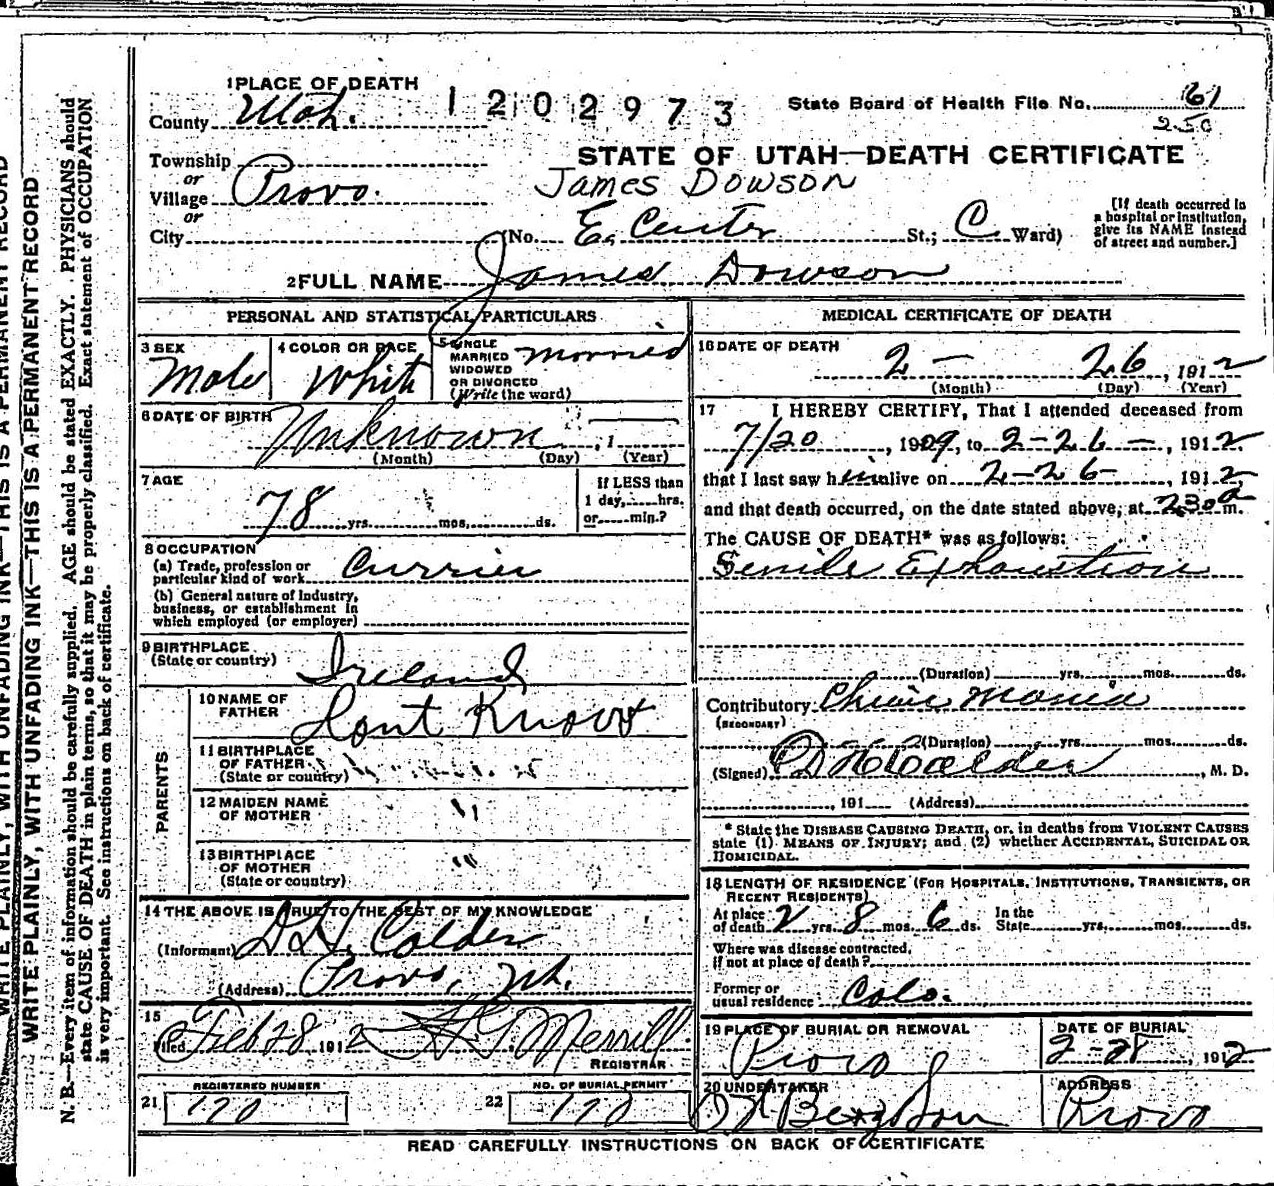 1 PLACE OF DEATH
1202973
State Board of Health File No. 61
250
County Utah.
STATE OF UTAH—DEATH CERTIFICATE
Township
or
Village Provo.
or
City
James Dowson
(No. E. Center St.; C Ward)
[If death occurred in
a hospital or institution,
give its NAME instead
of street and number.]
2 FULL NAME James Dowson
PERSONAL AND STATISTICAL PARTICULARS
3 SEX
Male
4 COLOR OR RACE
White
5 SINGLE
MARRIED
WIDOWED
OR DIVORCED
(Write the word)
Married
6 DATE OF BIRTH
Unknown , 1
(Month) (Day) (Year)
7 AGE
78 yrs. mos. ds.
If LESS than
1 day, hrs.
or min.?
8 OCCUPATION
(a) Trade, profession or
particular kind of work Currier
(b) General nature of Industry,
business, or establishment in
which employed (or employer)
9 BIRTHPLACE
(State or country) Ireland
PARENTS
10 NAME OF
FATHER Dont Know
11 BIRTHPLACE
OF FATHER
(State or country) " "
12 MAIDEN NAME
OF MOTHER "
13 BIRTHPLACE
OF MOTHER
(State or country) "
14 THE ABOVE IS TRUE TO THE BEST OF MY KNOWLEDGE
(Informant) D. H. Calder
(Address) Provo, Ut.
15
Filed Feb 28 1912 Merrill
REGISTRAR
21 REGISTERED NUMBER
120
22 NO. OF BURIAL PERMIT
120
MEDICAL CERTIFICATE OF DEATH
16 DATE OF DEATH
2 — 26 , 1912
(Month) (Day) (Year)
17 I HEREBY CERTIFY, That I attended deceased from
7/20 , 1909, to 2-26 — , 1912
that I last saw him alive on 2-26 , 1912,
and that death occurred, on the date stated above, at 2.30 a m.
The CAUSE OF DEATH* was as follows:
Senile Exhaustion
(Duration) yrs. mos. ds.
Contributory Chronic Mania
(SECONDARY)
(Duration) yrs. mos. ds.
(Signed) D H Calder , M. D.
, 191 (Address)
* State the DISEASE CAUSING DEATH, or, in deaths from VIOLENT CAUSES
state (1) MEANS OF INJURY; and (2) whether ACCIDENTAL, SUICIDAL OR
HOMICIDAL.
18 LENGTH OF RESIDENCE (FOR HOSPITALS, INSTITUTIONS, TRANSIENTS, OR
RECENT RESIDENTS)
At place
of death 2 yrs. 8 mos. 6 ds.
In the
State yrs. mos. ds.
Where was disease contracted,
if not at place of death?
Former or
usual residence Colo.
19 PLACE OF BURIAL OR REMOVAL
Provo
DATE OF BURIAL
2-28 , 1912
20 UNDERTAKER
ADDRESS
Provo
READ CAREFULLY INSTRUCTIONS ON BACK OF CERTIFICATE
WRITE PLAINLY, WITH UNFADING INK—THIS IS A PERMANENT RECORD
WRITE PLAINLY, WITH UNFADING INK—THIS IS A PERMANENT RECORD
N. B.—Every item of information should be carefully supplied. AGE should be stated EXACTLY. PHYSICIANS should
state CAUSE OF DEATH in plain terms, so that it may be properly classified. Exact statement of OCCUPATION
is very important. See instructions on back of certificate.